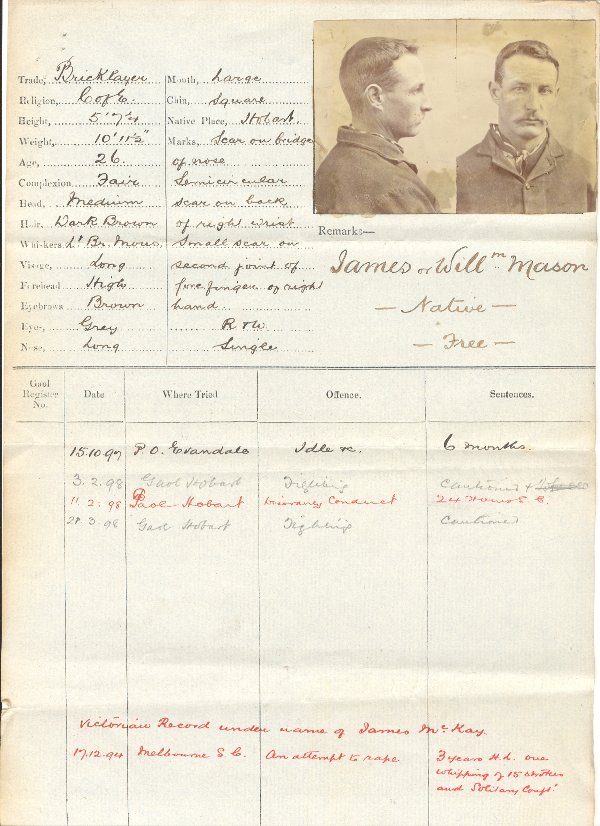 Trade, Bricklayer
Religion, C of E.
Height, 5' 7¼
Weight, 10' 11½"
Age, 26
Complexion Fair
Head, Medium
Hair, Dark Brown
Whiskers Lt Br. Mous
Visage, Long
Forehead High
Eyebrows Brown
Eyes, Grey
Nose, Long
Mouth, Large
Chin, Square
Native Place, Hobart
Marks, Scar on bridge
of nose
Semicircular
scar on back
of right wrist
Small scar on
second point of
forefinger of right
hand
R & W
Single
Remarks—
James or Willm Mason
— Native —
— Free —
Gaol Register No. Date Where Tried Offence. Sentences.
15.10.97 P O. Evandale Idle &c. 6 months.
3.2.98 Gaol Hobart Fighting Cautioned &
11.2.98 Gaol Hobart Conduct 24 Hours S. C.
28.3.98 Gaol Hobart Fighting Cautioned
Victorian Record under name of James McKay.
17.12.94 Melbourne S. C. An attempt to rape 3 years H.L. one
whipping of 15 strokes
and Solitary Conft